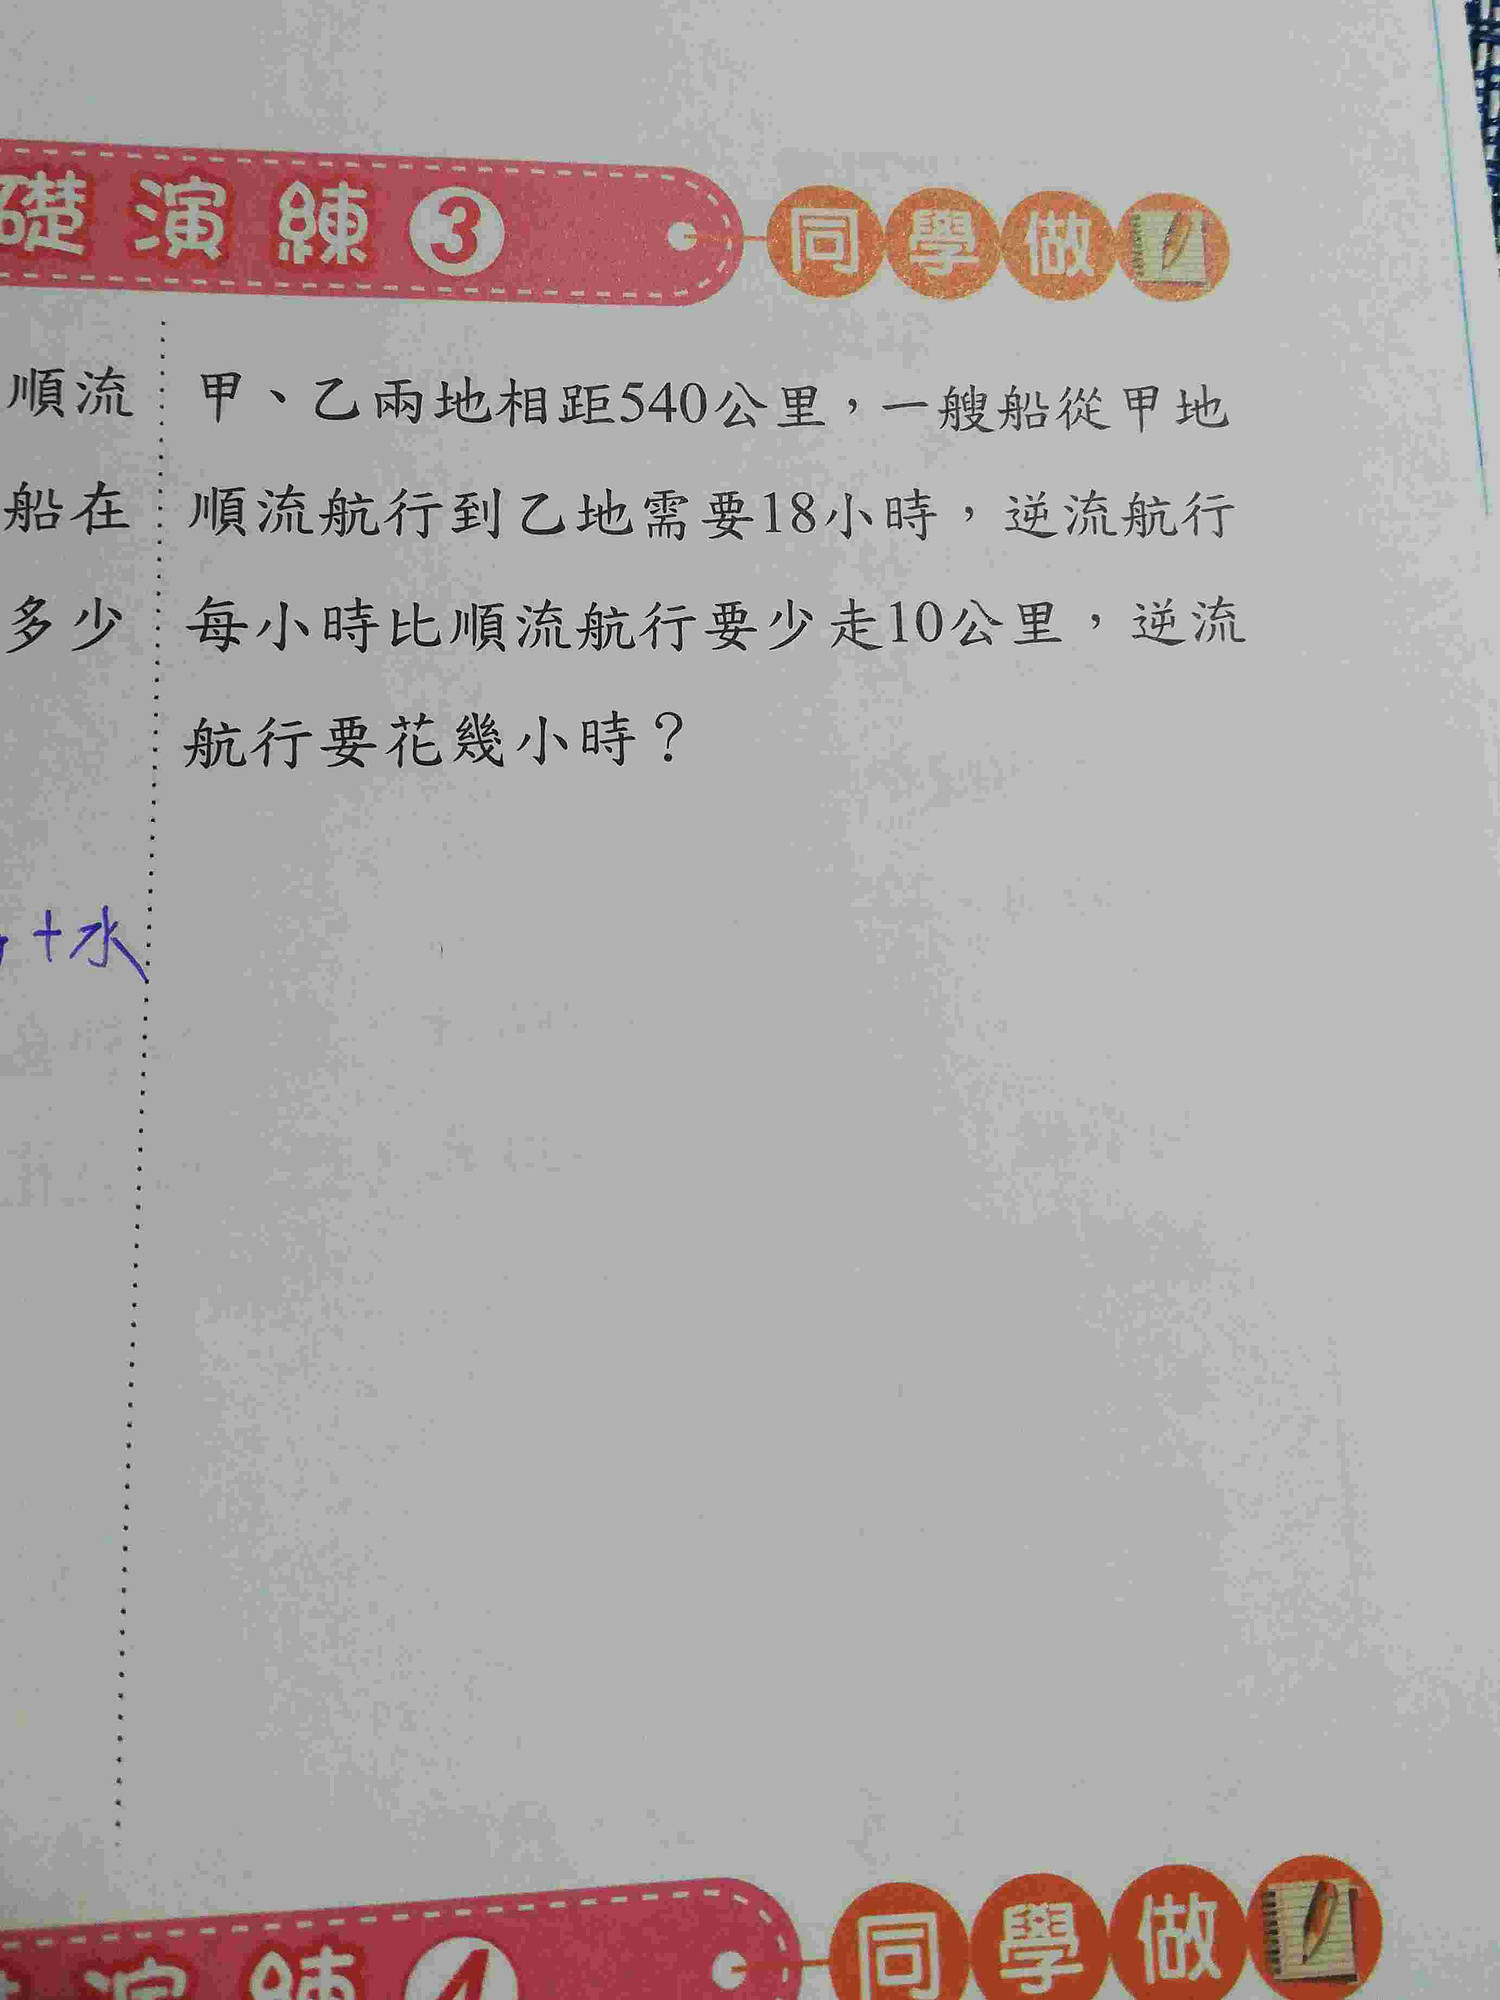 礎演練3 同學做
順流
船在
多少
+水
甲、乙兩地相距540公里，一艘船從甲地
順流航行到乙地需要18小時，逆流航行
每小時比順流航行要少走10公里，逆流
航行要花幾小時？
演練4 同學做